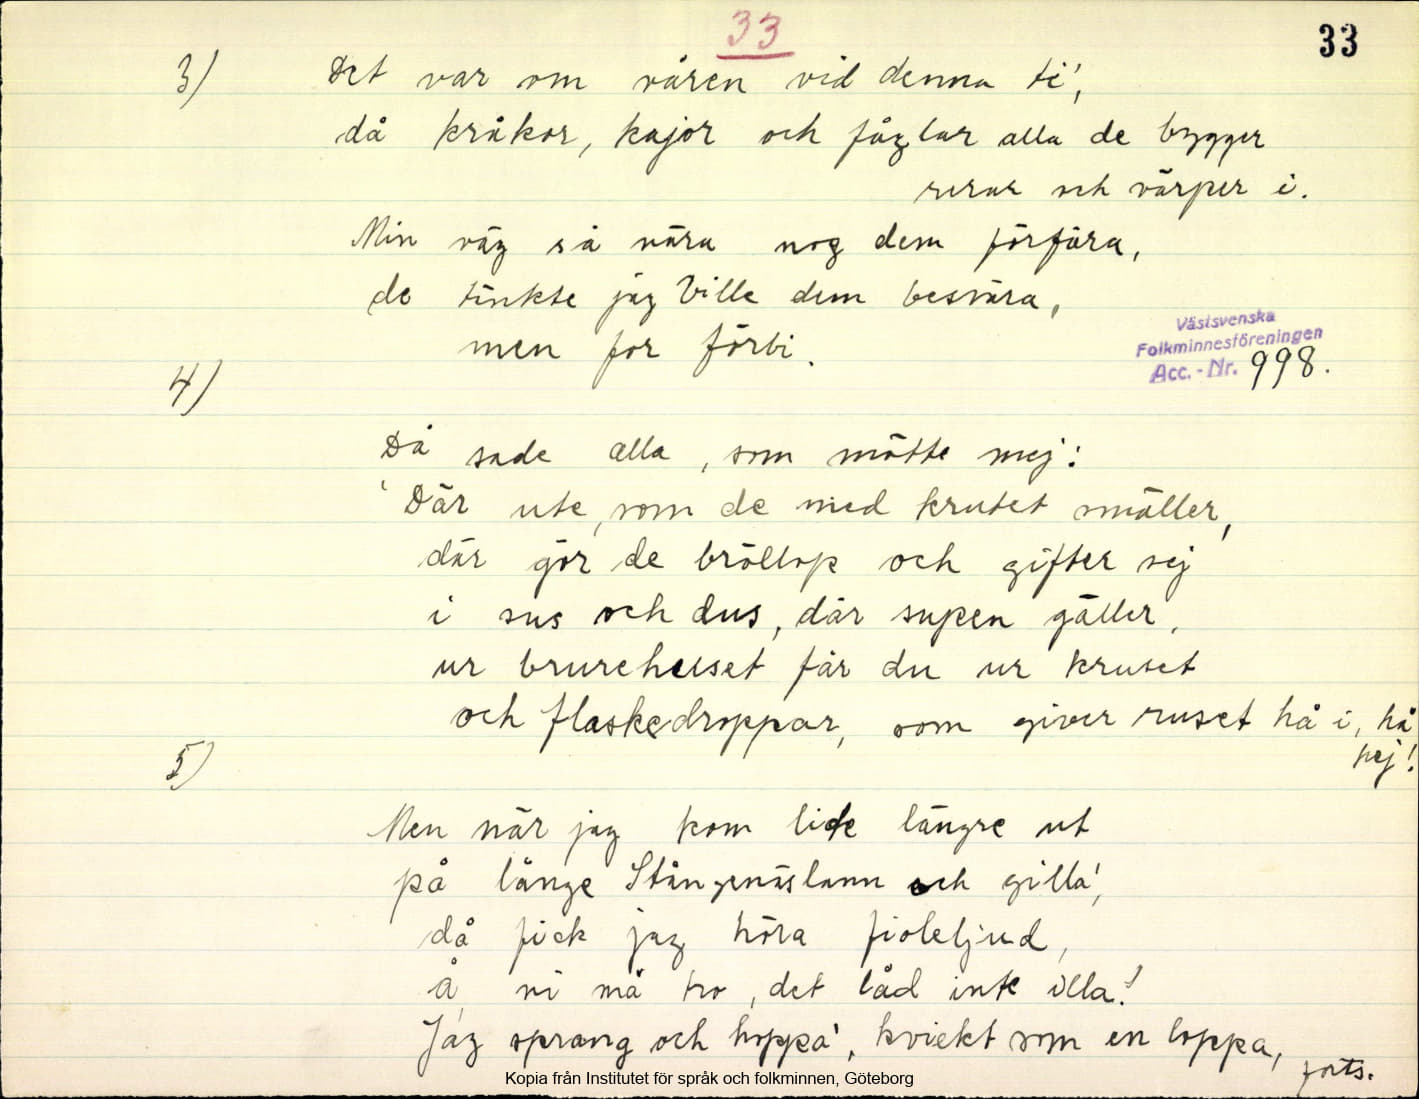 33
33
3) Det var om våren vid denna ti',
då kråkor, kajor och fåglar alla de bygger
rerar och värper i.
Min väg så nära nog dem förfära,
de tänkte jag ville dem besvära,
men for förbi.
Västsvenska
Folkminnesföreningen
Acc.-Nr. 998.
4)
Då sade alla, som mötte mej:
'Där ute, som de med krutet smäller,
där gör de bröllop och gifter sej
i sus och dus, där supen gäller,
ur brurehuset får du ur kruset
och flaskedroppar, som giver ruset hå i, hå
hej!
5)
Men när jag kom lide längre ut
på långe Stångenäslann och gilla',
då fick jag höra fioleljud,
å, ni må tro, det låd inte illa!
Jag sprang och hoppa', kvickt som en loppa,
forts.
Kopia från Institutet för språk och folkminnen, Göteborg